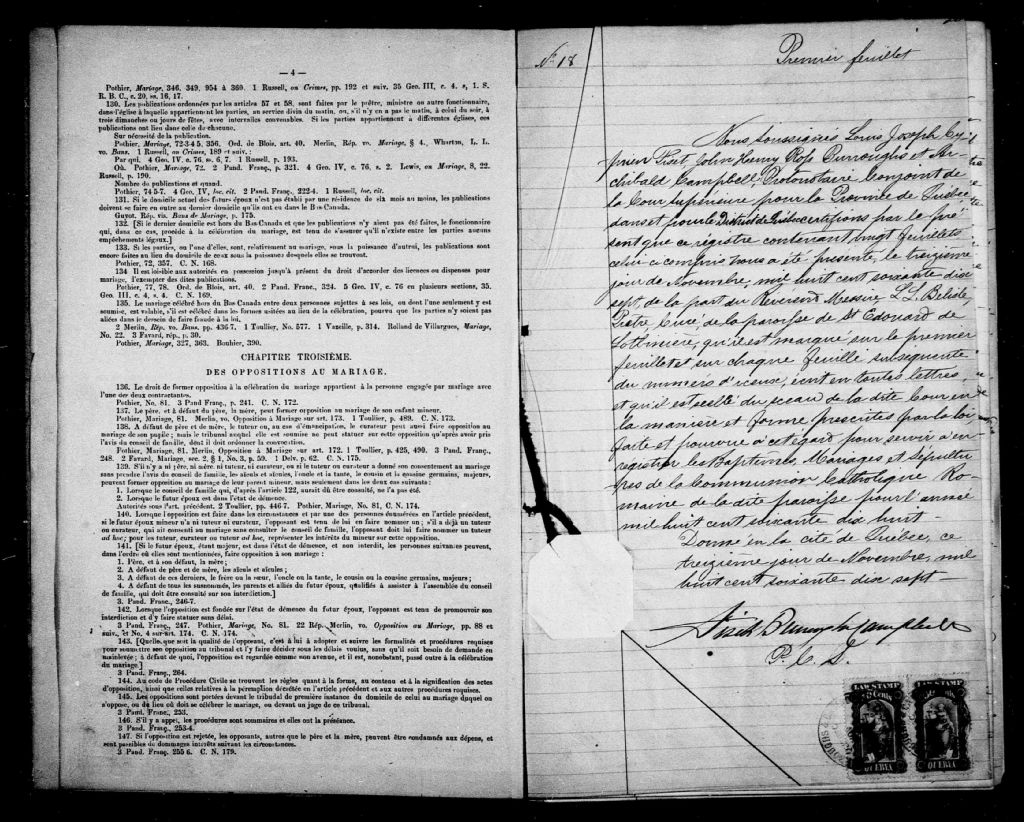 — 4 —
Pothier, Mariage, 346, 349, 954 à 360. 1 Russell, on Crimes, pp. 192 et suiv. 35 Geo. III, c. 4. s, 1. S.
R. B. C., c. 20, ss. 16, 17.
130. Les publications ordonnées par les articles 57 et 58, sont faites par le prêtre, ministre ou autre fonctionnaire,
dans l'église à laquelle appartiennent les parties, au service divin du matin, ou, s'il n'y en a pas le matin, à celui du soir, à
trois dimanches ou jours de fêtes, avec intervalles convenables. Si les parties appartiennent à différentes églises, ces
publications ont lieu dans celle de chacune.
Sur nécessité de la publication.
Pothier, Mariage, 72-3-4-5, 356. Ord. de Blois, art. 40. Merlin, Rép. vo. Mariage, § 4. Wharton, L. L.
vo. Bans. 1 Russell, on Crimes, 189 et suiv.
Par qui. 4 Geo. IV, c. 76, ss. 6, 7. 1 Russell, p. 193.
Où. Pothier, Mariage, 72. 2 Pand. Franç., p. 321. 4 Geo. IV, c. 76, s. 2. Lewis, on Mariage, 8, 22.
Russell, p. 190.
Nombre de publications et quand.
Pothier, 74-5-7. 4 Geo. IV, loc. cit. 2 Pand. Franç., 222-4. 1 Russell, loc. cit.
131. Si le domicile actuel des futurs époux n'est pas établi par une résidence de six mois au moins, les publications
doivent se faire en outre au dernier domicile qu'ils ont eu dans le Bas Canada.
Guyot, Rép. vis. Bans de Mariage, p. 175.
132. [Si le dernier domicile est hors du Bas Canada et que les publications n'y aient pas été faites, le fonctionnaire
qui, dans ce cas, procède à la célébration du mariage, est tenu de s'assurer qu'il n'existe entre les parties aucuns
empêchements légaux.]
133. Si les parties, ou l'une d'elles, sont, relativement au mariage, sous la puissance d'autrui, les publications sont
encore faites au lieu du domicile de ceux sous la puissance desquels elles se trouvent.
Pothier, 72, 357. C. N. 168.
134 Il est loisible aux autorités en possession jusqu'à présent du droit d'accorder des licences ou dispenses pour
mariage, l'exempter des dites publications.
Pothier, 77, 78. Ord. de Blois, art. 40. 2 Pand. Franç., 324. 5 Geo. IV, c. 76 en plusieurs sections, 35.
Geo. III, c. 4, s. 4. C. N. 169.
135. Le mariage célébré hors du Bas Canada entre deux personnes sujettes à ses lois, ou dont l'une seulement y est
soumise, est valable, s'il est célébré dans les formes usitées au lieu de la célébration, pourvu que les parties n'y soient pas
allées dans le dessein de faire fraude à la loi.
2 Merlin, Rép. vo. Bans, pp. 436-7. 1 Toullier, No. 577. 1 Vazeille, p. 314. Rolland de Villargues, Mariage,
No. 22. 3 Favard, rép., p. 30.
Pothier, Mariage, 327, 363. Bouhier, 390.
CHAPITRE TROISIÈME.
DES OPPOSITIONS AU MARIAGE.
136. Le droit de former opposition à la célébration du mariage appartient à la personne engagée par mariage avec
l'une des deux contractantes.
Pothier, No. 81. 3 Pand Franç., p. 241. C. N. 172.
137. Le père, et à défaut du père, la mère, peut former opposition au mariage de son enfant mineur.
Pothier, Mariage, 81. Merlin, vo. Opposition à Mariage sur art. 173. 1 Toullier, p. 489. C. N. 173.
138. A défaut de père et de mère, le tuteur ou, au cas d'émancipation, le curateur peut aussi faire opposition au
mariage de son pupille ; mais le tribunal auquel elle est soumise ne peut statuer sur cette opposition qu'après avoir pris
l'avis du conseil de famille, dont il doit ordonner la convocation.
Pothier, Mariage, 81. Merlin, Opposition à Mariage sur art. 172. 1 Toullier, p. 425, 490. 3 Pand. Franç.,
248. 2 Favard, Mariage, sec. 2, § 1, No. 3, p. 59. 1 Delv. p. 62. C. N. 175.
139. S'il n'y a ni père, ni mère, ni tuteur, ni curateur, ou si le tuteur ou curateur a donné son consentement au mariage
sans prendre l'avis du conseil de famille, les aïeuls et aïeules, l'oncle et la tante, le cousin et la cousine germains, majeurs,
peuvent former opposition au mariage de leur parent mineur, mais seulement dans les deux cas suivants :
1. Lorsque le conseil de famille qui, d'après l'article 122, aurait dû être consulté, ne l'a pas été.
2. Lorsque le futur époux est dans l'état de démence.
Autorités sous l'art. précédent. 2 Toullier, pp. 446-7. Pothier, Mariage, No. 81, C. N. 174.
140. Lorsque l'opposition est faite dans les circonstances et par une des personnes énumérées en l'article précédent,
si le futur époux mineur n'a ni tuteur ni curateur, l'opposant est tenu de lui en faire nommer un ; s'il a déjà un tuteur
ou curateur, qui ait consenti au mariage sans consulter le conseil de famille, l'opposant doit lui faire nommer un tuteur
ad hoc ; pour les tuteur, curateur ou tuteur ad hoc, représenter les intérêts du mineur sur cette opposition.
141. [Si le futur époux, étant majeur, est dans l'état de démence, et non interdit, les personnes suivantes peuvent,
dans l'ordre où elles sont mentionnées, faire opposition à son mariage :
1. Père, et à son défaut, la mère ;
2. A défaut de père et de mère, les aïeuls et aïeules ;
3. A défaut de ces derniers, le frère ou la sœur, l'oncle ou la tante, le cousin ou la cousine germains, majeurs ;
4. A défaut de tous les susnommés, les parents et alliés du futur époux, qualifiés à assister à l'assemblée du conseil
de famille, qui doit être consulté sur son interdiction.]
3. Pand. Franç., 246-7.
142. Lorsque l'opposition est fondée sur l'état de démence du futur époux, l'opposant est tenu de promouvoir son
interdiction et d'y faire statuer sans délai.
3 Pand. Franç., 247. Pothier, Mariage, No. 81. 22 Rép. Merlin, vo. Opposition au Mariage, pp. 88 et
suiv., et No. 4 sur art. 174. C. N. 174.
143. [Quelle que soit la qualité de l'opposant, c'est à lui à adopter et suivre les formalités et procédures requises
pour soumettre son opposition au tribunal et l'y faire décider sous les délais voulus, sans qu'il soit besoin de demande en
mainlevée ; à défaut de quoi, l'opposition est regardée comme non avenue, et il est, nonobstant, passé outre à la célébration
du mariage.]
3 Pand. Franç., 264.
144. Au code de Procédure Civile se trouvent les règles quant à la forme, au contenu et à la signification des actes
d'opposition, ainsi que celles relatives à la péremption décrétée en l'article précédent et aux autres procédures requises.
145. Les oppositions sont portées devant le tribunal de première instance du domicile de celui au mariage duquel on
s'oppose, ou du lieu où doit se célébrer le mariage, ou devant un juge de ce tribunal.
3 Pand. Franç., 253.
146. S'il y a appel, les procédures sont sommaires et elles ont la préséance.
3 Pand. Franç., 253-4.
147. Si l'opposition est rejetée, les opposants, autres que le père et la mère, peuvent être condamnés aux dépens, et
sont passibles de dommages intérêts suivant les circonstances.
3 Pand. Franç. 255 6. C. N. 179.
No 18
Premier feuillet
Nous soussignés Louis Joseph Cy-
prien Fiset, John Henry Ross Burroughs et Ar-
chibald Campbell, Protonotaire Conjoint de
la Cour Supérieure pour la Province de Québec
dans et pour le District de Québec certifions par le pré-
sent que ce régistre contenant vingt feuillets
celui-ci compris nous a été présenté, le treizième
jour de Novembre, mil huit cent soixante dix
sept, de la part du Révérend Messire L. L. Belisle,
Prêtre Curé, de la paroisse de St Edouard de
Lotbinière, qu'il est marqué sur le premier
feuillet et sur chaque feuille subséquente
du numéro d'iceux, écrit en toutes lettres,
et qu'il est scellé du sceau de la dite Cour en
la manière et forme prescrites par la loi
faite et pourvue à cet égard pour servir à en-
registrer les Baptêmes, Mariages et Sépultu-
res de la Communion Catholique Ro-
maine de la dite paroisse pour l'année
mil huit cent soixante dix huit
Donné en la cité de Québec, ce
treizième jour de Novembre, mil
huit cent soixante dix sept
Fiset Burroughs Campbell
P. C. S.
LAW STAMP
QUEBEC
LAW STAMP
QUEBEC